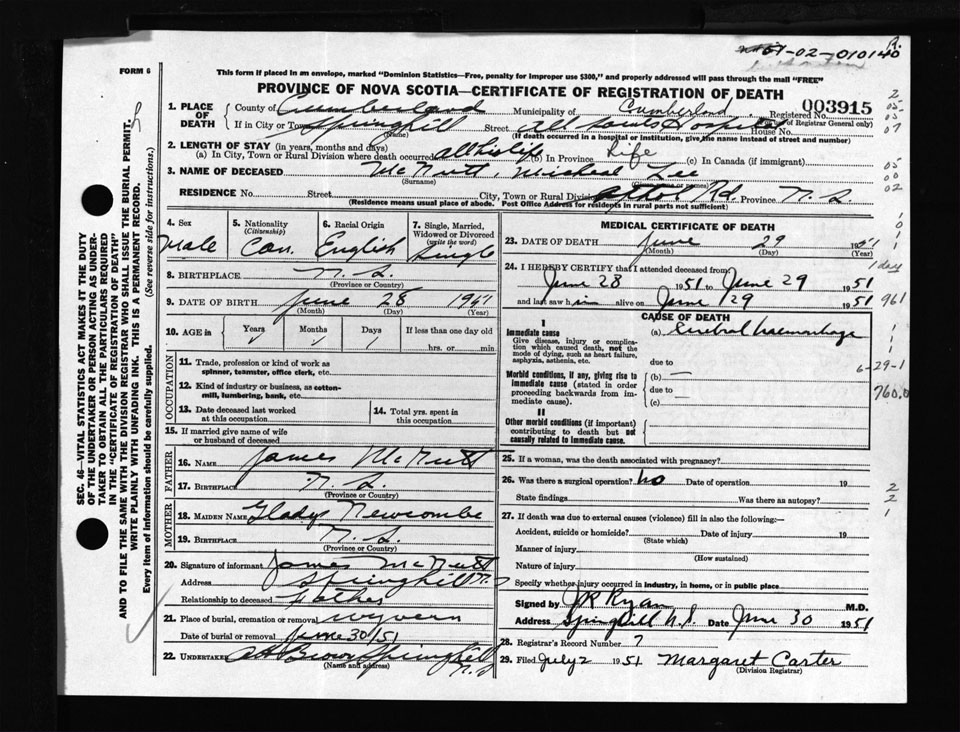 01-02-010140
FORM 6
This form if placed in an envelope, marked "Dominion Statistics—Free, penalty for improper use $300," and properly addressed will pass through the mail "FREE"
PROVINCE OF NOVA SCOTIA—CERTIFICATE OF REGISTRATION OF DEATH
003915
1. PLACE OF DEATH County of Cumberland Municipality of Cumberland Registered No.
(For use of Registrar General only)
If in City or Town Springhill Street All Saints Hospital House No.
(Name) (If death occurred in a hospital or institution, give the name instead of street and number)
2. LENGTH OF STAY (in years, months and days)
(a) In City, Town or Rural Division where death occurred all his life (b) In Province Life (c) In Canada (if immigrant)
3. NAME OF DECEASED McNutt, Micheal Lee
(Surname)
RESIDENCE No. Street City, Town or Rural Division Rd. Province N.S.
(Residence means usual place of abode. Post Office Address for residents in rural parts not sufficient)
4. Sex Male
5. Nationality (Citizenship) Can.
6. Racial Origin English
7. Single, Married, Widowed or Divorced (write the word) Single
8. BIRTHPLACE N.S.
(Province or Country)
9. DATE OF BIRTH June 28 1951
(Month) (Day) (Year)
10. AGE in Years Months Days If less than one day old
1 hrs. or min.
OCCUPATION
11. Trade, profession or kind of work as spinner, teamster, office clerk, etc.
12. Kind of industry or business, as cotton-mill, lumbering, bank, etc.
13. Date deceased last worked at this occupation
14. Total yrs. spent in this occupation
15. If married give name of wife or husband of deceased
FATHER
16. NAME James McNutt
17. BIRTHPLACE N.S.
(Province or Country)
MOTHER
18. MAIDEN NAME Gladys Newcombe
19. BIRTHPLACE N.S.
(Province or Country)
20. Signature of informant James McNutt
Address Springhill N.S
Relationship to deceased Father
21. Place of burial, cremation or removal Wyvern
Date of burial or removal June 30/51
22. UNDERTAKER AH Brown Springhill N.S
(Name and address)
MEDICAL CERTIFICATE OF DEATH
23. DATE OF DEATH June 29 1951
(Month) (Day) (Year)
24. I HEREBY CERTIFY that I attended deceased from
June 28 1951 to June 29 1951
and last saw h im alive on June 29 1951
CAUSE OF DEATH
I
Immediate cause (a) Cerebral haemorrhage
Give disease, injury or complication which caused death, not the mode of dying, such as heart failure, asphyxia, asthenia, etc.
due to
Morbid conditions, if any, giving rise to immediate cause (stated in order proceeding backwards from immediate cause).
(b) —
due to —
(c)
II
Other morbid conditions (if important) contributing to death but not causally related to immediate cause.
1 day
961
6-29-1
760.0
25. If a woman, was the death associated with pregnancy?
26. Was there a surgical operation? no Date of operation 19
State findings Was there an autopsy?
27. If death was due to external causes (violence) fill in also the following:—
Accident, suicide or homicide? Date of injury 19
(State which)
Manner of injury
(How sustained)
Nature of injury
Specify whether injury occurred in industry, in home, or in public place
Signed by JR Ryan M.D.
Address Springhill N.S. Date June 30 1951
28. Registrar's Record Number 7
29. Filed July 2 1951 Margaret Carter
(Division Registrar)
SEC. 46—VITAL STATISTICS ACT MAKES IT THE DUTY
OF THE UNDERTAKER OR PERSON ACTING AS UNDER-
TAKER TO OBTAIN ALL THE PARTICULARS REQUIRED
IN THE "CERTIFICATE OF REGISTRATION OF DEATH"
AND TO FILE THE SAME WITH THE DIVISION REGISTRAR WHO SHALL ISSUE THE BURIAL PERMIT.
WRITE PLAINLY WITH UNFADING INK. THIS IS A PERMANENT RECORD.
Every item of information should be carefully supplied. (See reverse side for instructions.)